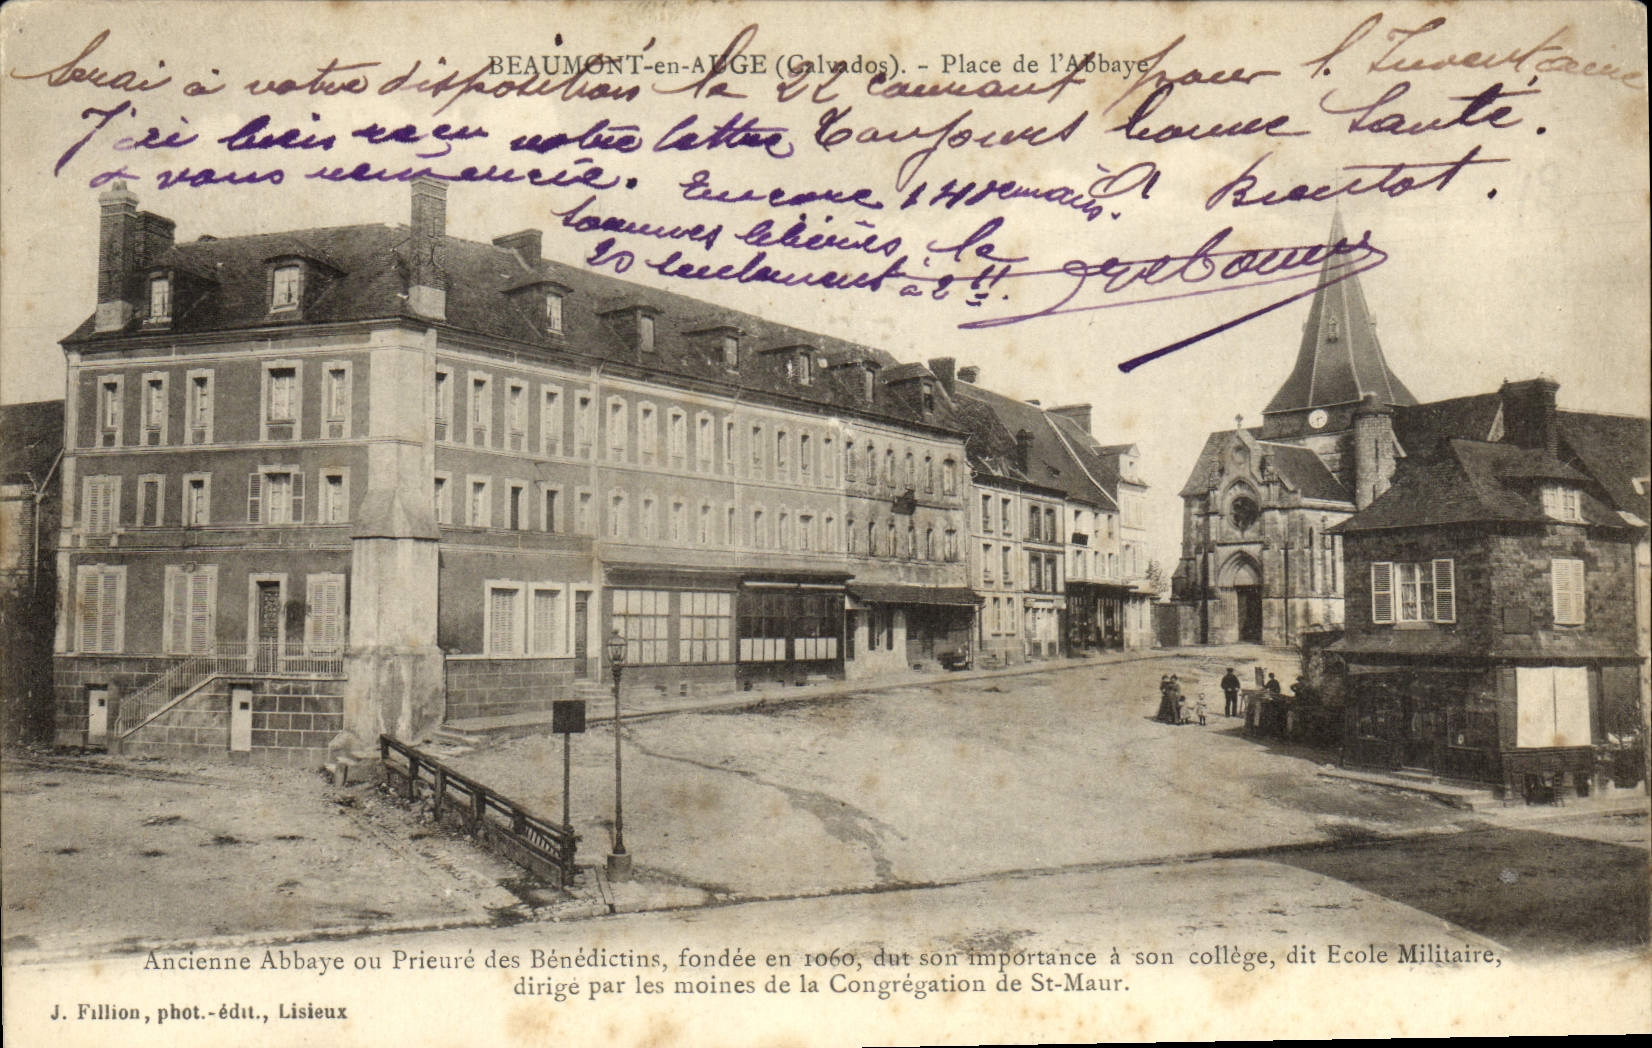 BEAUMONT-en-AUGE (Calvados). - Place de l'Abbaye
Serai à votre disposition le 22 courant pour l'Inventaire
J'ai bien reçu votre lettre Toujours bonne Santé.
& vous remercie. Encore 1 A Bientot.
Sommes libérés le
20 seulement à 2 H.
Ancienne Abbaye ou Prieuré des Bénédictins, fondée en 1060, dut son importance à son collège, dit Ecole Militaire,
dirigé par les moines de la Congrégation de St-Maur.
J. Fillion, phot.-édit., Lisieux